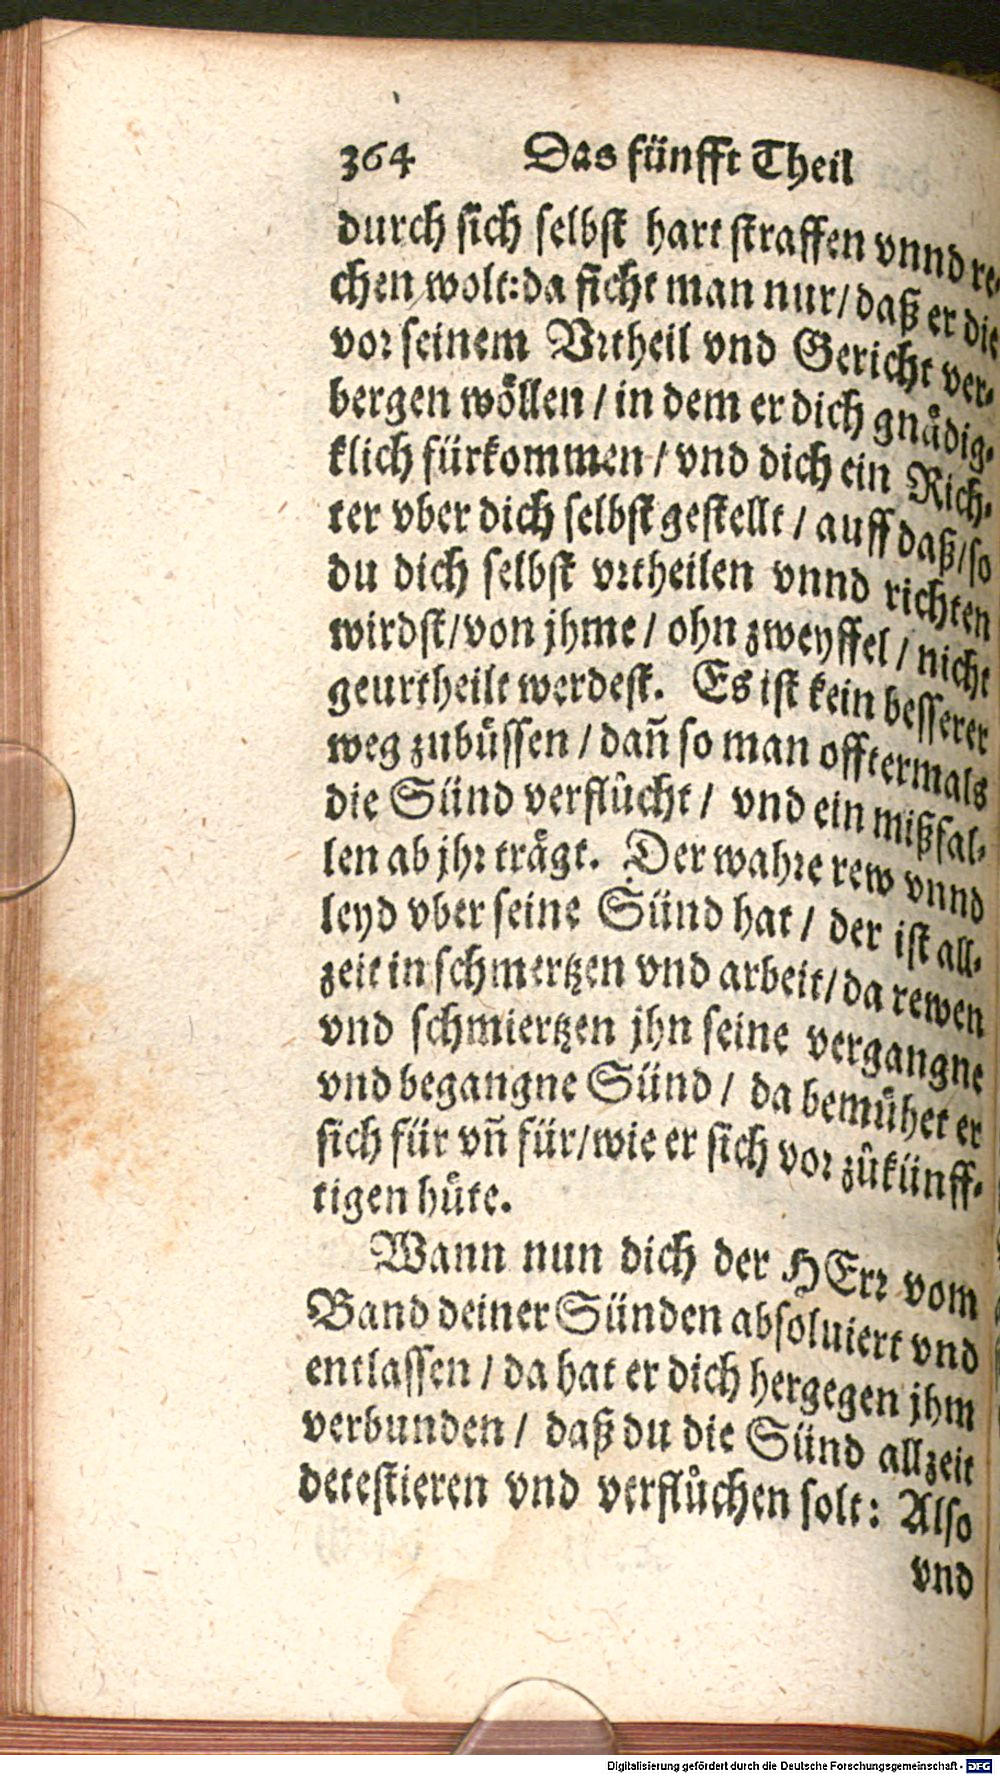 364 Das fünfft Theil
durch sich selbst hart straffen vnnd re-
chen wolt: da sicht man nur / daß er die
vor seinem Vrtheil vnd Gericht ver-
bergen wöllen / in dem er dich gnådig-
klich fürkommen / vnd dich ein Rich-
ter vber dich selbst gestellt / auff daß / so
du dich selbst vrtheilen vnnd richten
wirdst / von jhme / ohn zweyffel / nicht
geurtheilt werdest. Es ist kein besserer
weg zubüssen / dañ so man offtermals
die Sünd verflůcht / vnd ein mißfal-
len ab jhr trågt. Der wahre rew vnnd
leyd vber seine Sünd hat / der ist all-
zeit in schmertzen vnd arbeit / da rewen
vnd schmiertzen jhn seine vergangne
vnd begangne Sünd / da bemühet er
sich für vñ für / wie er sich vor zůkünff-
tigen hüte.
Wann nun dich der HErr vom
Band deiner Sünden absoluiert vnd
entlassen / da hat er dich hergegen jhm
verbunden / daß du die Sünd allzeit
detestieren vnd verflůchen solt: Also
vnd
Digitalisierung gefördert durch die Deutsche Forschungsgemeinschaft - DFG